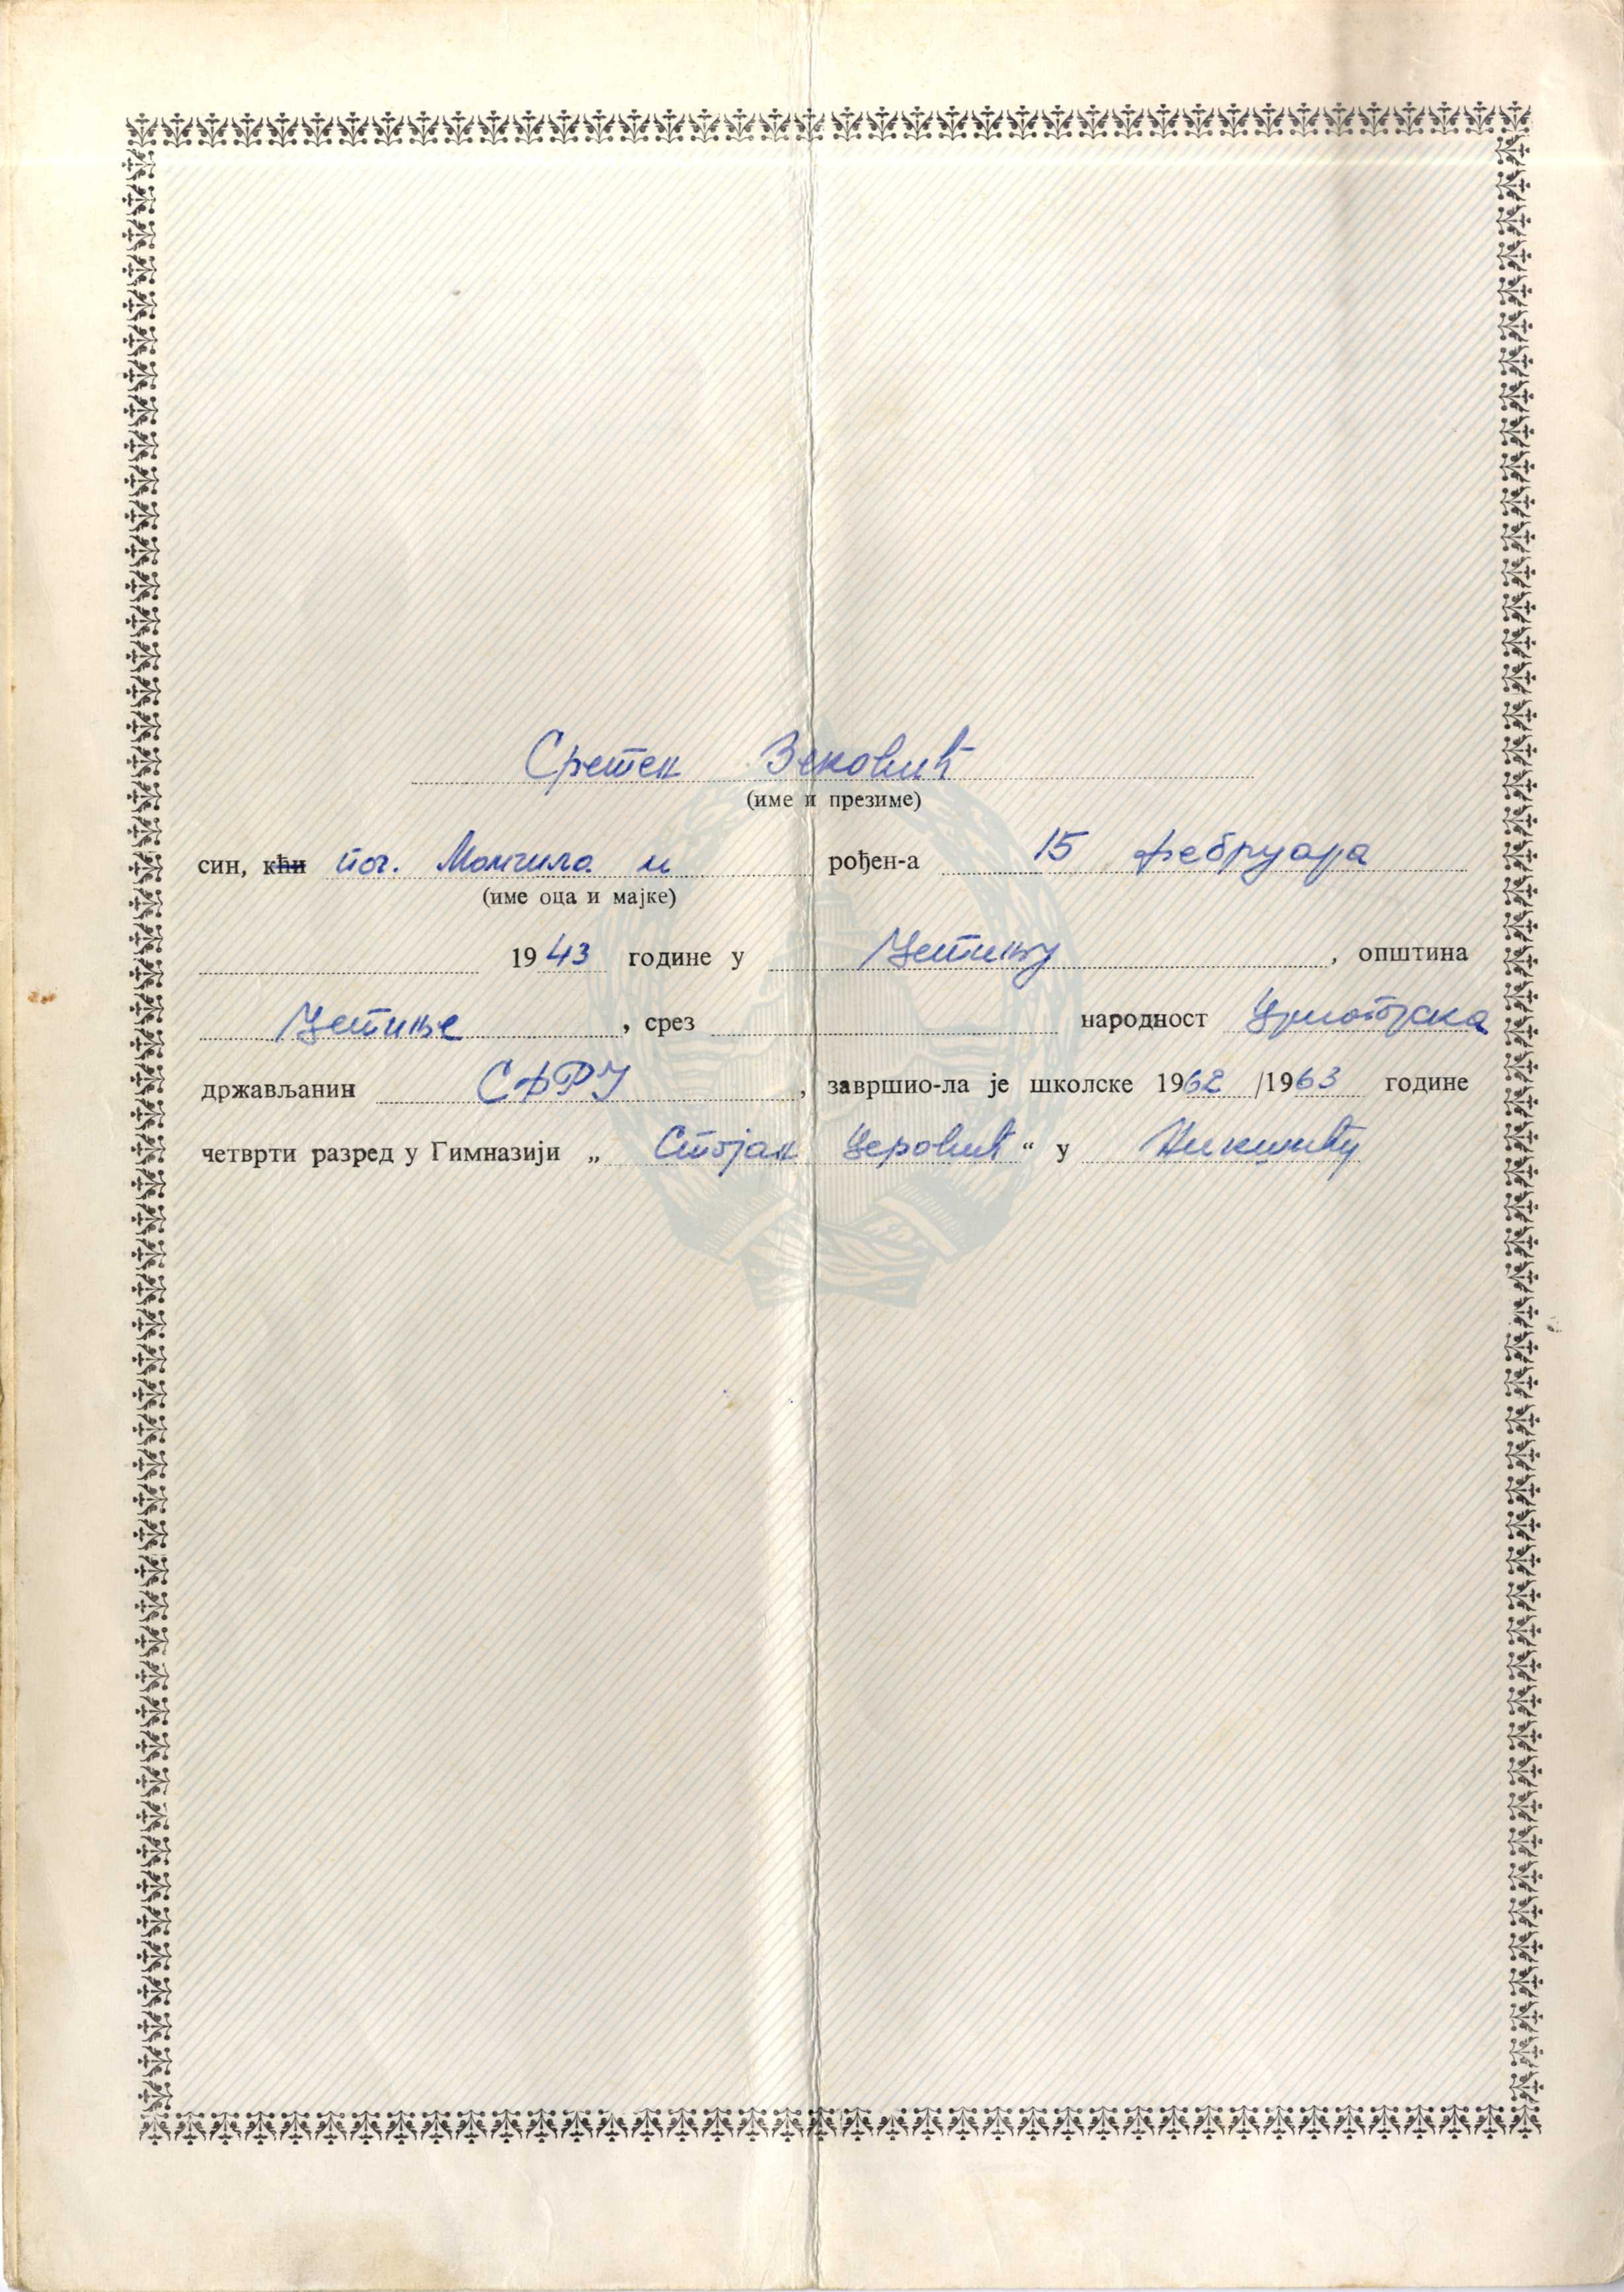 Сретен Зековић
(име и презиме)
син, кћи пок. Момчила и рођен-а 15 фебруара
(име оца и мајке)
1943 године у Цетињу, општина
Цетиње, срез народност Црногорска
држављанин СФРЈ, завршио-ла је школске 1962/1963 године
четврти разред у Гимназији „Стојан Церовић“ у Никшићу